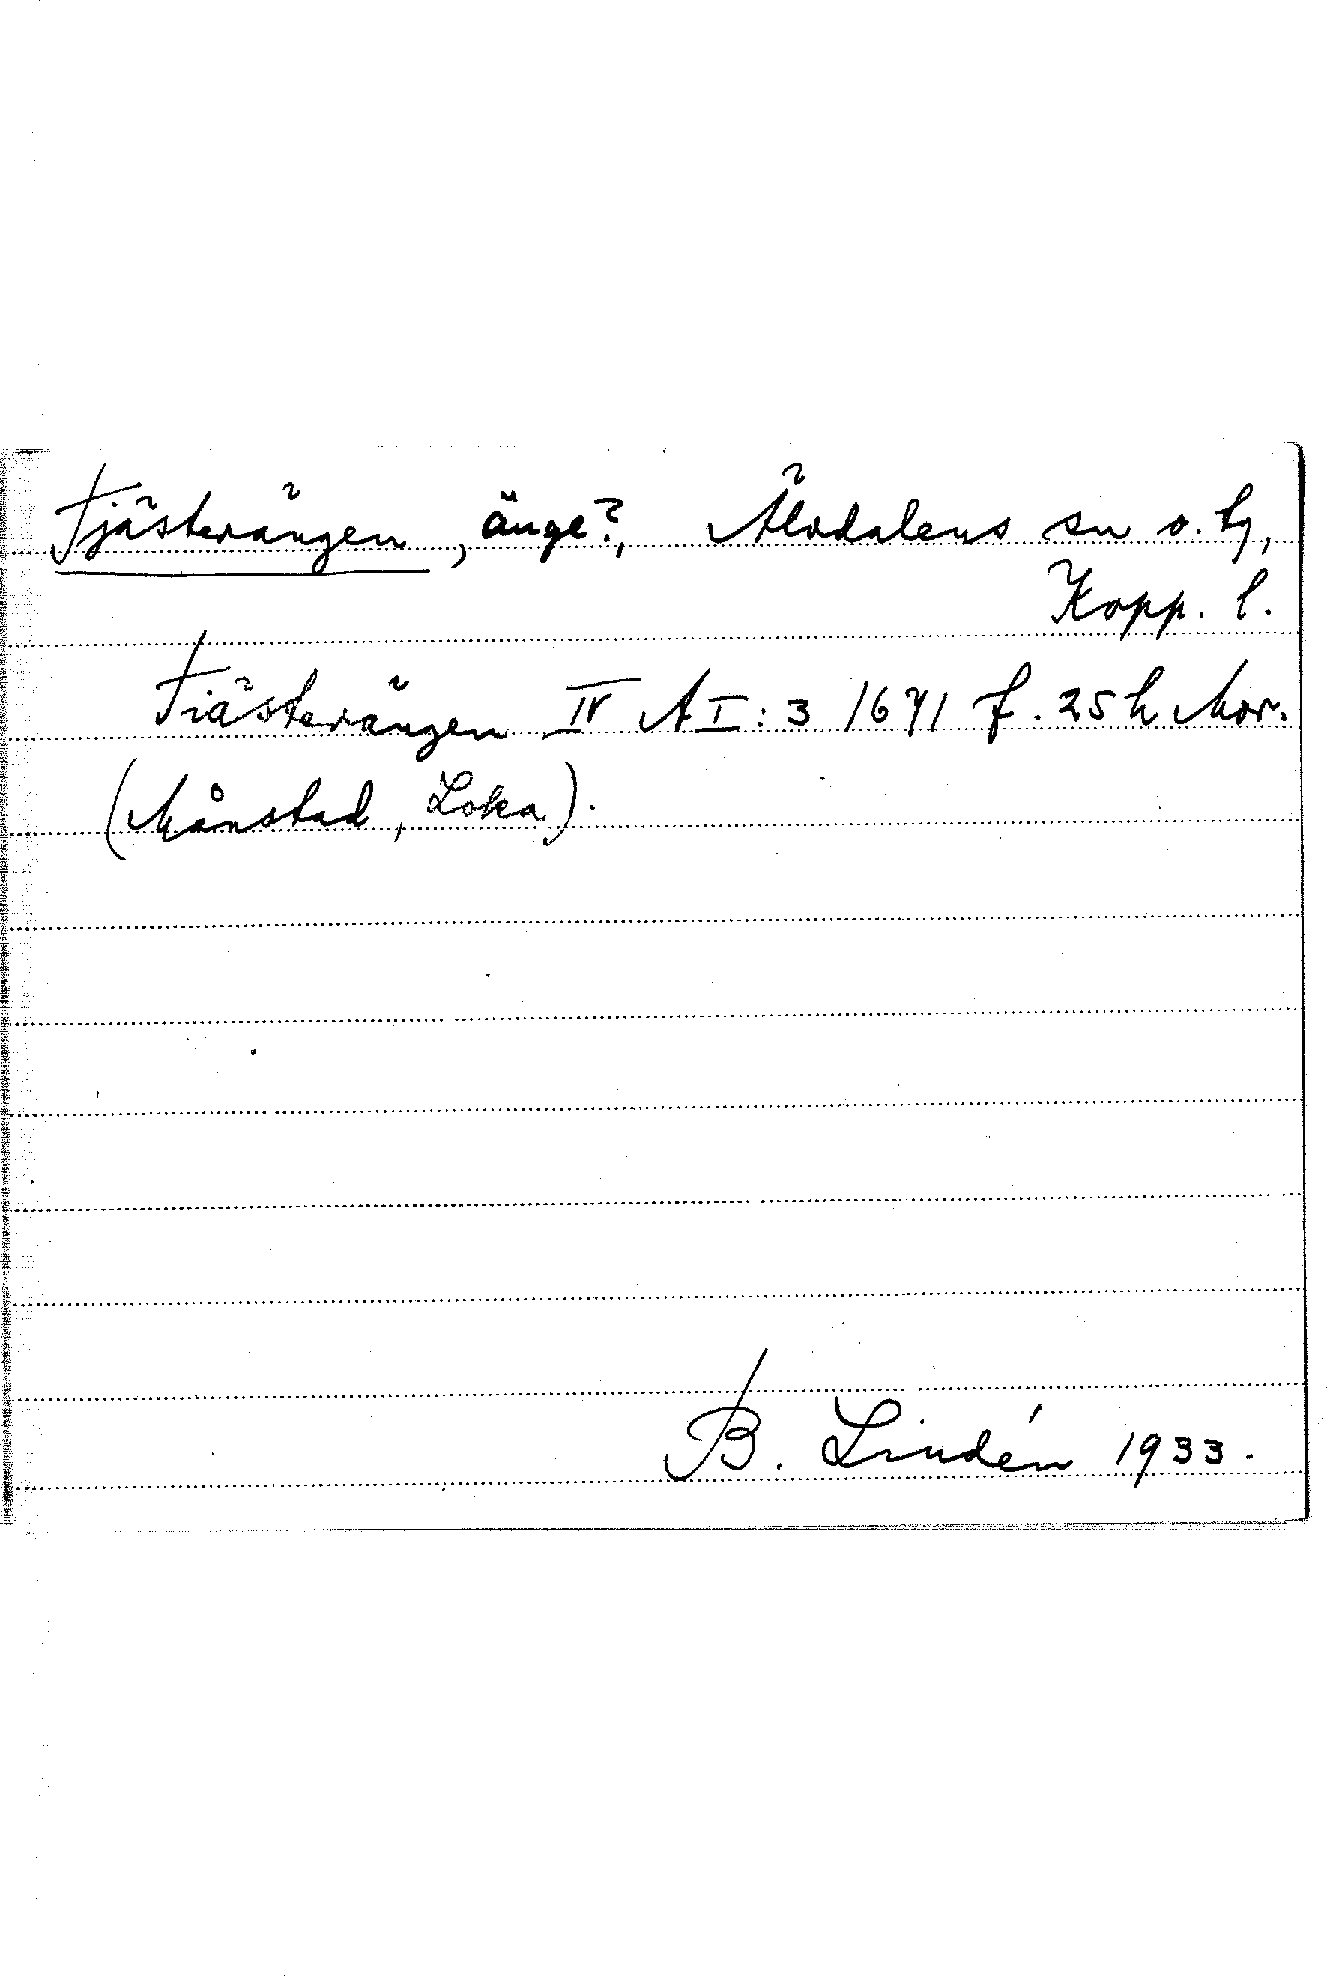 Tjästerängen, änge?, Älvdalens sn o. tg,
Kopp. l.
Tiästerängen IV A I: 3 1671 f. 25 h Mor.
(Månstad, Loka).
B. Lindén 1933.